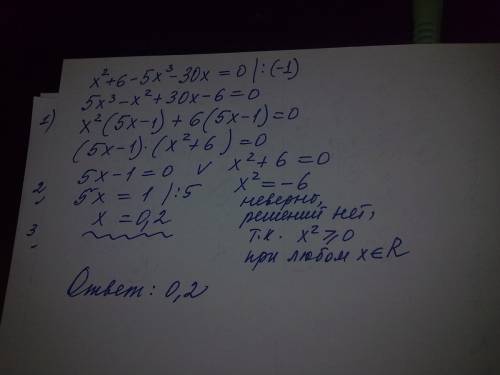 x²+6-5x³-30x=0 |:(-1)
5x³-x²+30x-6=0
1) x²(5x-1)+6(5x-1)=0
(5x-1)·(x²+6)=0
5x-1=0 ∨ x²+6=0
2, 5x=1 |:5 x²=-6
неверно,
3, x=0,2 решений нет,
т.к. x²⩾0
при любом x∈R
Ответ: 0,2